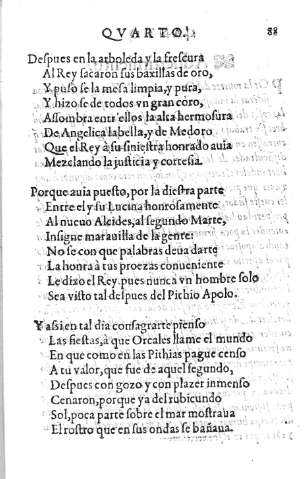 QVARTO. 88
Despues en la arboleda y la frescura
Al Rey sacaron sus baxillas de oro,
Y puso se la mesa limpia, y pura,
Y hizo se de todos vn gran coro,
Assombra entr'ellos la alta hermosura
De Angelica la bella, y de Medoro
Que el Rey à su siniestra honrado auia
Mezclando la justicia y cortesia.
Porque auia puesto, por la diestra parte
Entre el y su Lucina honrosamente
Al nueuo Alcides, al segundo Marte,
Insigne marauilla de la gente:
No se con que palabras deua darte
La honra à tus proezas conueniente
Le dizo el Rey, pues nunca vn hombre solo
Sea visto tal despues del Pithio Apolo.
Y assi en tal dia consagrarte pienso
Las fiestas, à que Orcales llame el mundo
En que como en las Pithias pague censo
A tu valor, que fue de aquel segundo,
Despues con gozo y con plazer inmenso
Cenaron, porque ya del rubicundo
Sol, poca parte sobre el mar mostraua
El rostro que en sus ondas se bañaua.